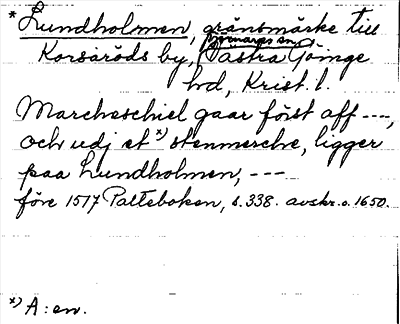 *Lundholmen, gränsmärke till
Korsaröds by, Västra Göinge
hd, Krist. l.
Marcheschiel gaar först aff ---,
och udj et *) stenmerche, ligger
paa Lundholmen, ---
före 1517 Palteboken, s. 338. avskr. o. 1650.
*) A: en.